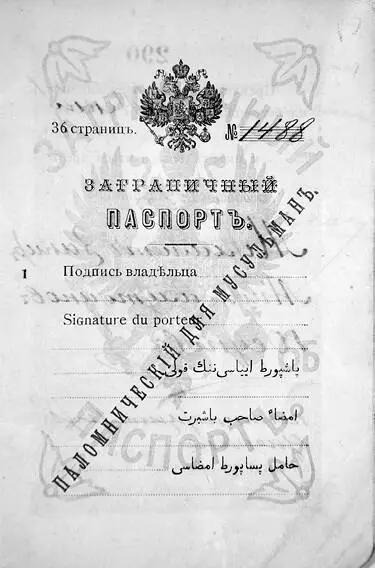 36 страницъ.
№ 1488
ЗАГРАНИЧНЫЙ
ПАСПОРТЪ.
1 Подпись владѣльца
Signature du porteur
پاشپورط ایياسی ننك قولی
امضاء صاحب پاشپرت
حامل پساپورط امضاسی
ПАЛОМНИЧЕСКІЙ ДЛЯ МУСУЛЬМАНЪ.